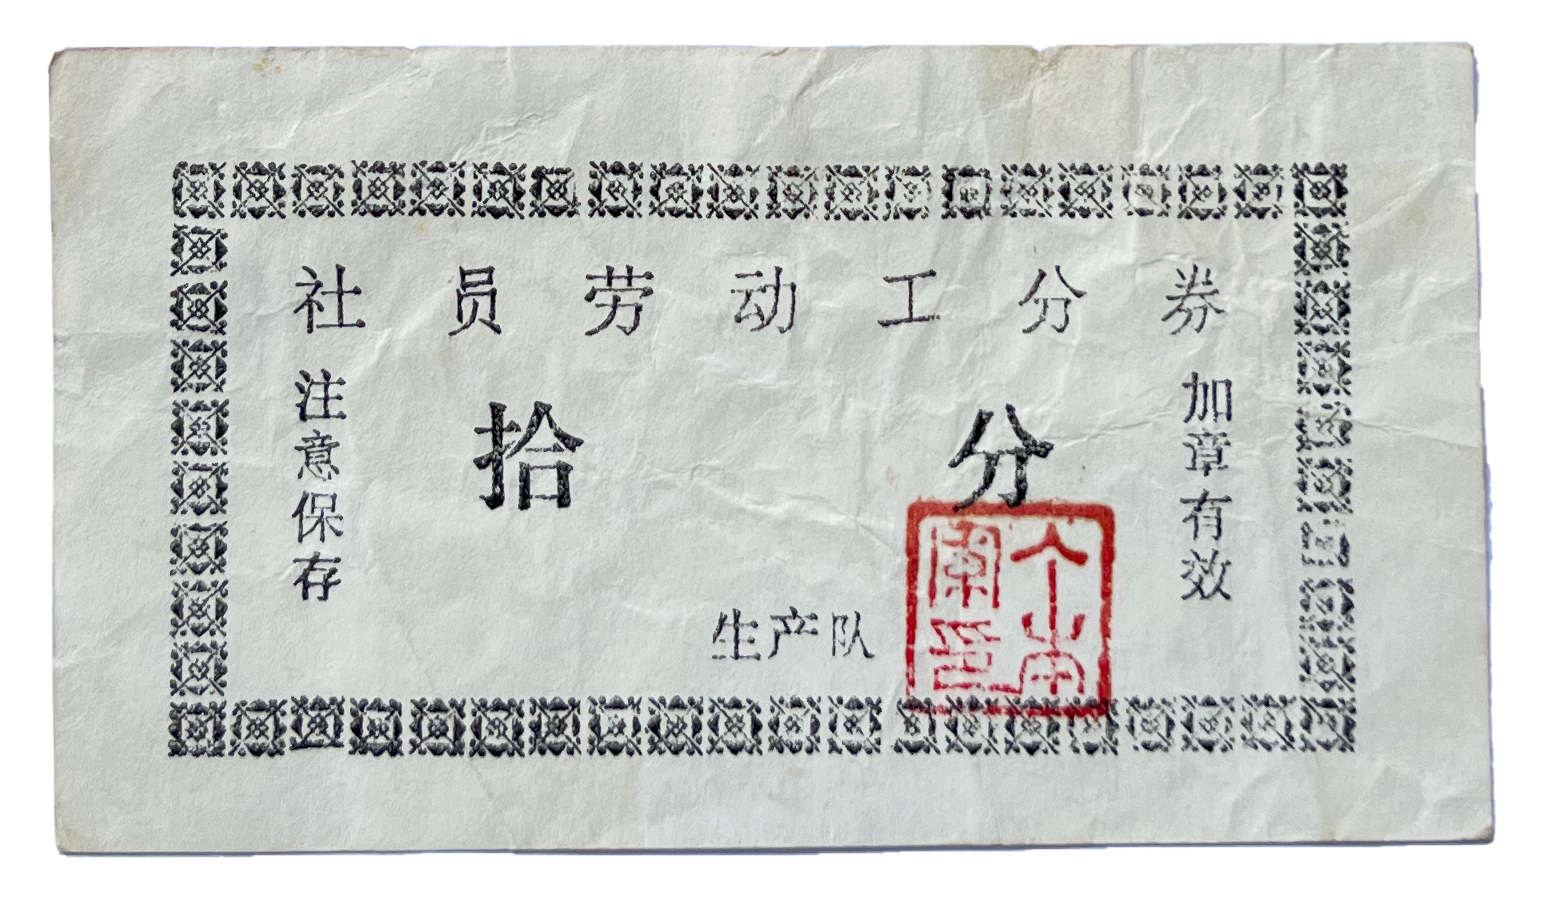 社员劳动工分券
注意保存
拾分
加章有效
生产队